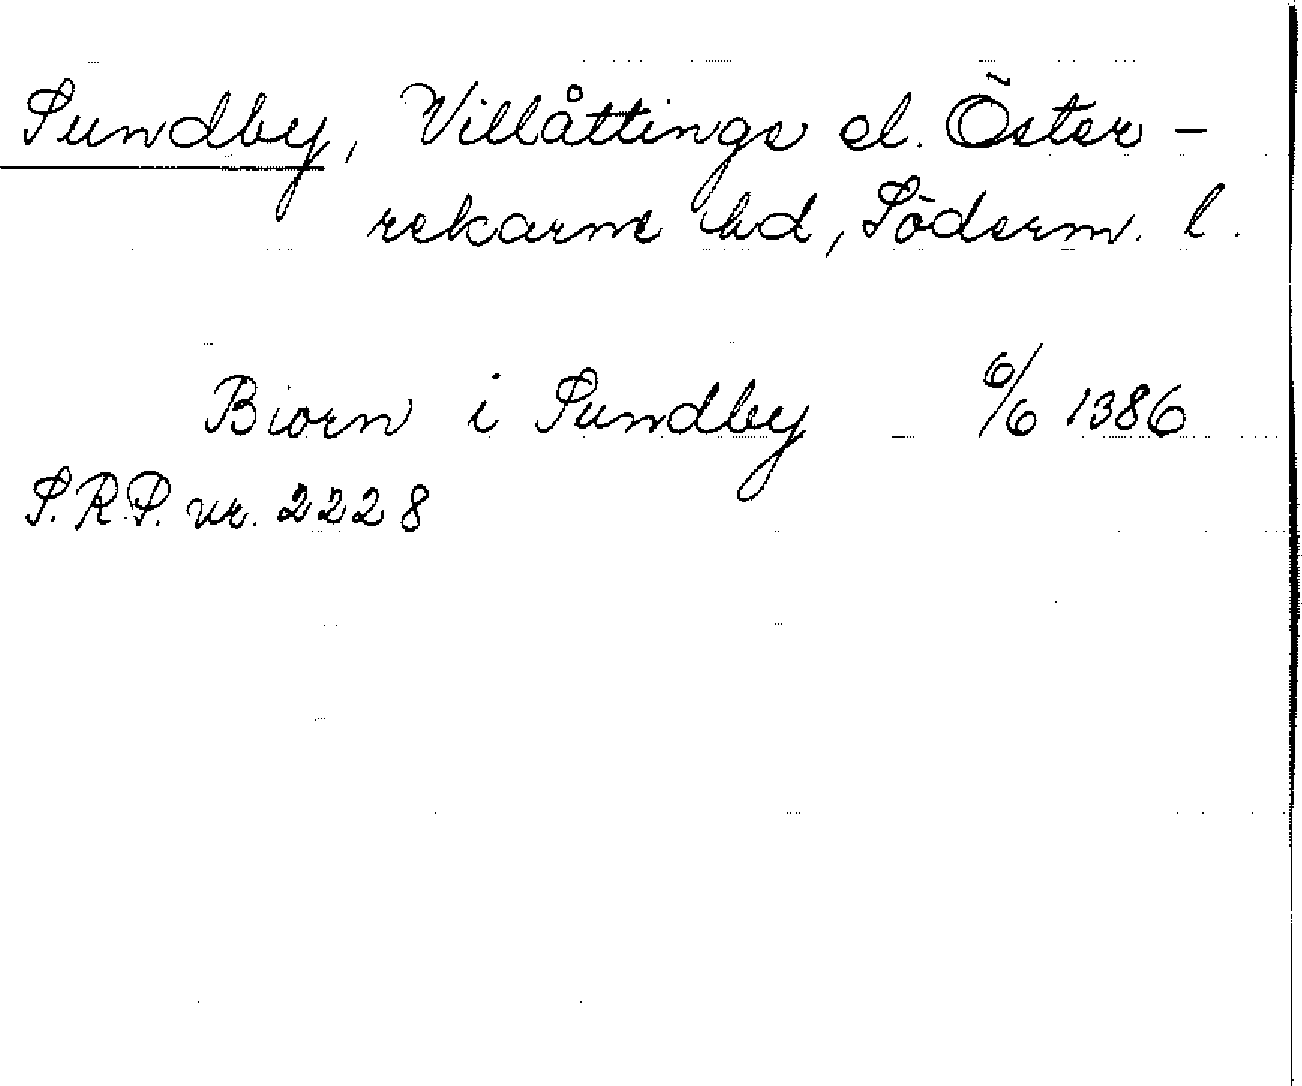 Sundby, Villåttinge el. Öster-
rekarne hd, Söderm. l.
Biorn i Sundby 6/6 1386
S.R.P. nr. 2228